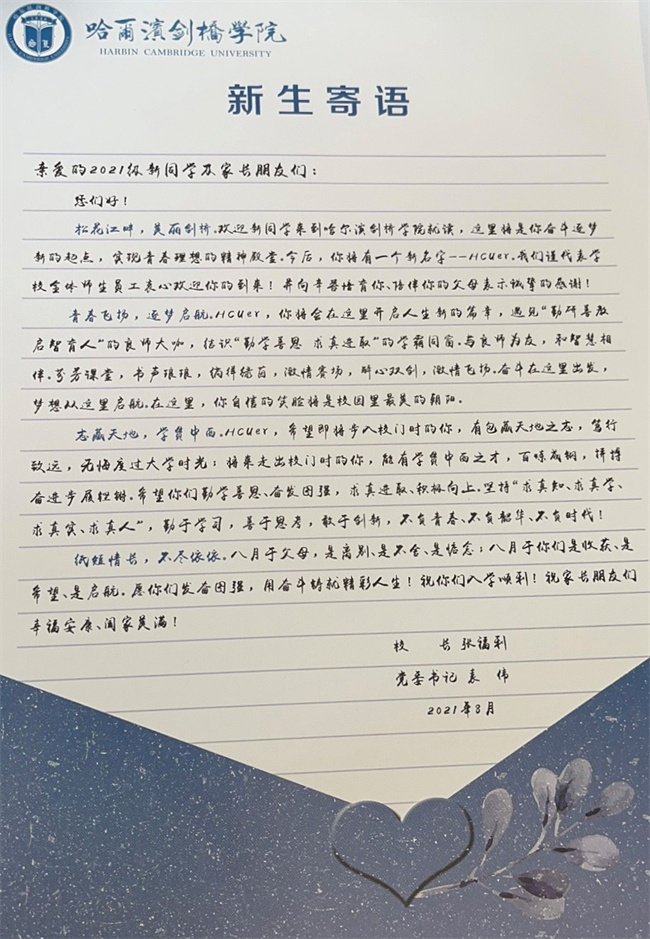 哈爾濱劍橋學院
HARBIN CAMBRIDGE UNIVERSITY
新生寄语
亲爱的2021级新同学及家长朋友们：
您们好！
松花江畔，美丽剑桥.欢迎新同学来到哈尔滨剑桥学院就读，这里将是你奋斗逐梦
新的起点，实现青春理想的精神殿堂.今后，你将有一个新名字--HCUer.我们谨代表学
校全体师生员工衷心欢迎你的到来！并向辛苦培育你、陪伴你的父母表示诚挚的感谢！
青春飞扬，逐梦启航.HCUer，你将会在这里开启人生新的篇章，遇见“勤研善教
启智育人”的良师大咖，结识“勤学善思 求真进取”的学霸同窗.与良师为友，和智慧相
伴.芬芳课堂，书声琅琅，绮得绪茵，激情赛场，醉心双创，激情飞扬.奋斗在这里出发，
梦想从这里启航.在这里，你自信的笑脸将是校园里最美的朝阳.
志藏天地，学贯中西.HCUer，希望即将步入校门时的你，有包藏天地之志，笃行
致远，无悔度过大学时光；将来走出校门时的你，能有学贯中西之才，百炼成钢，拼搏
奋进步履铿锵.希望你们勤学善思、奋发图强，求真进取、积极向上.坚持“求真知、求真学、
求真实、求真人”，勤于学习，善于思考，敢于创新，不负青春、不负韶华、不负时代！
纸短情长，不尽依依.八月于父母，是离别、是不舍、是结念；八月于你们是收获、是
希望、是启航。愿你们发奋图强，用奋斗铸就精彩人生！祝你们入学顺利！祝家长朋友们
幸福安康、阖家美满！
校 长 张福利
党委书记 袁 伟
2021年8月